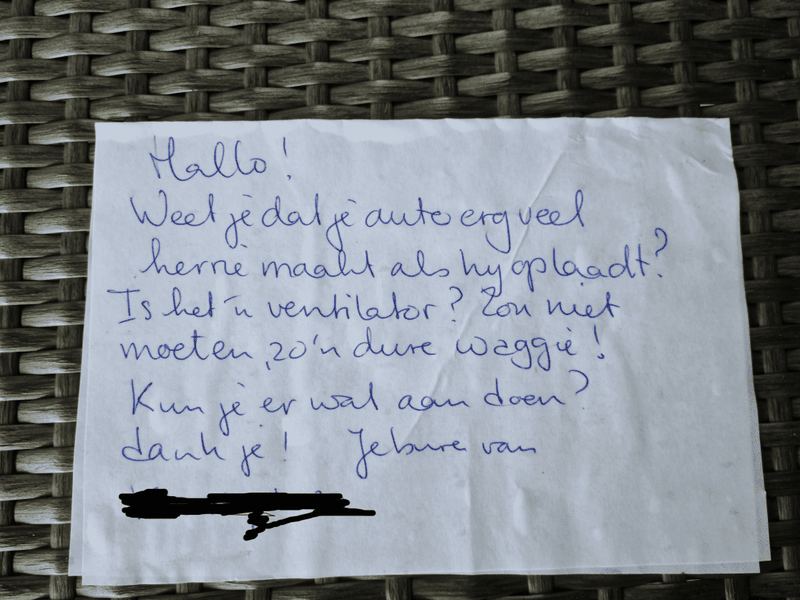 Hallo!
Weet je dat je auto erg veel
herrie maakt als hy oplaadt?
Is het 'n ventilator? Zou niet
moeten, zo'n dure waggie!
Kun je er wat aan doen?
dank je! Je bure van